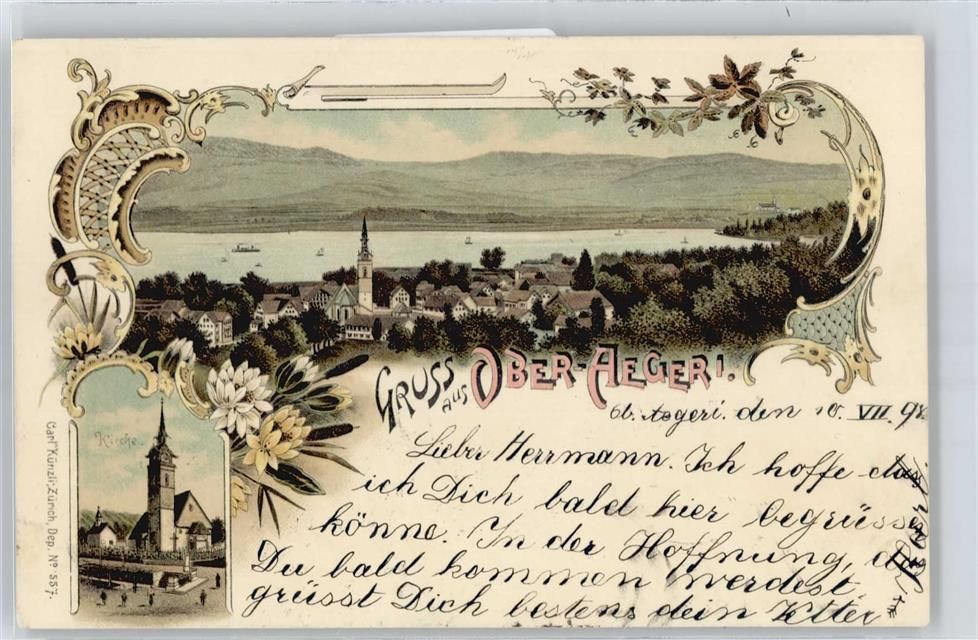 GRUSS aus OBER-AEGERI.
Ob. Aegeri. den 10. VII. 98
Lieber Herrmann. Ich hoffe dass
ich Dich bald hier begrüssen
könne. In der Hoffnung, dass
Du bald kommen werdest,
grüsst Dich bestens dein Vetter
Kirche.
Carl Künzli, Zürich, Dep. Nº 557.